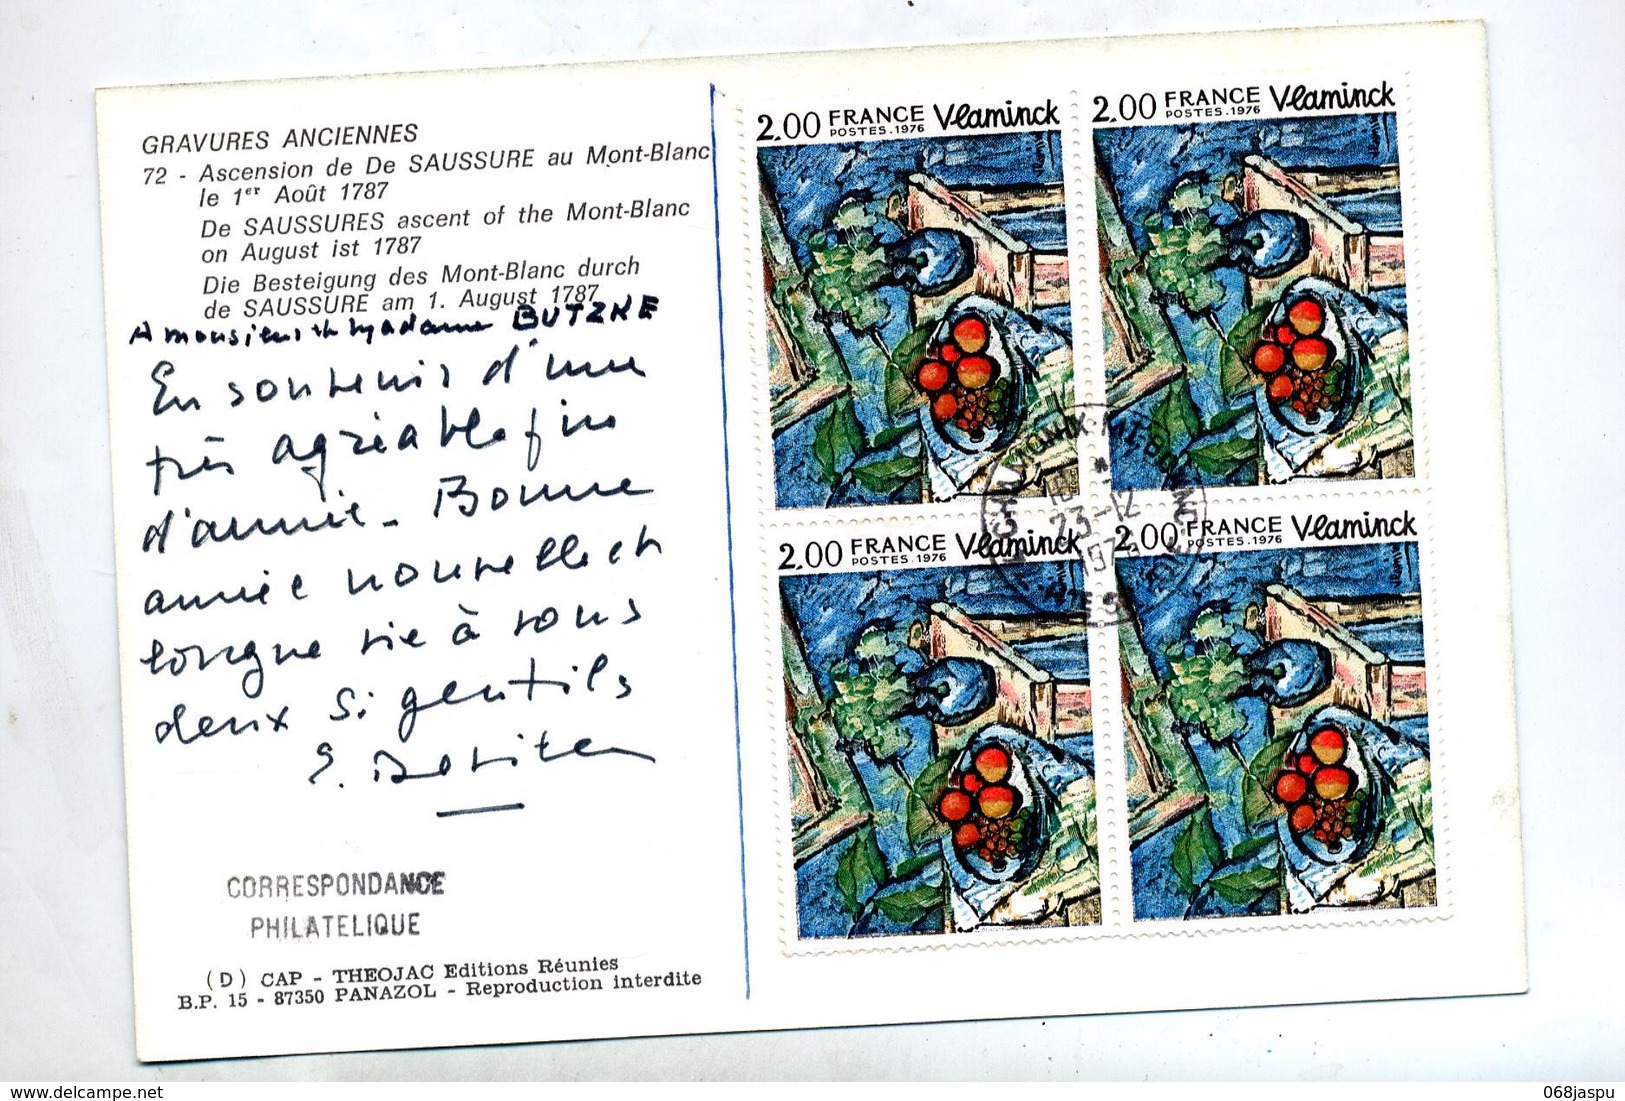 GRAVURES ANCIENNES
72 - Ascension de De SAUSSURE au Mont-Blanc
le 1er Août 1787
De SAUSSURES ascent of the Mont-Blanc
on August ist 1787
Die Besteigung des Mont-Blanc durch
de SAUSSURE am 1. August 1787
A monsieur et Madame BUTZKE
En souvenir d'une
très agréable fin
d'année - Bonne
année nouvelle et
longue vie à vous
deux si gentils
CORRESPONDANCE
PHILATELIQUE
(D) CAP - THEOJAC Editions Réunies
B.P. 15 - 87350 PANAZOL - Reproduction interdite
2.00 FRANCE Vlaminck
POSTES.1976
2.00 FRANCE Vlaminck
POSTES.1976
2.00 FRANCE Vlaminck
POSTES.1976
2.00 FRANCE Vlaminck
POSTES.1976
CHAMONIX MT BLANC
23-12
delcampe.net
068jaspu